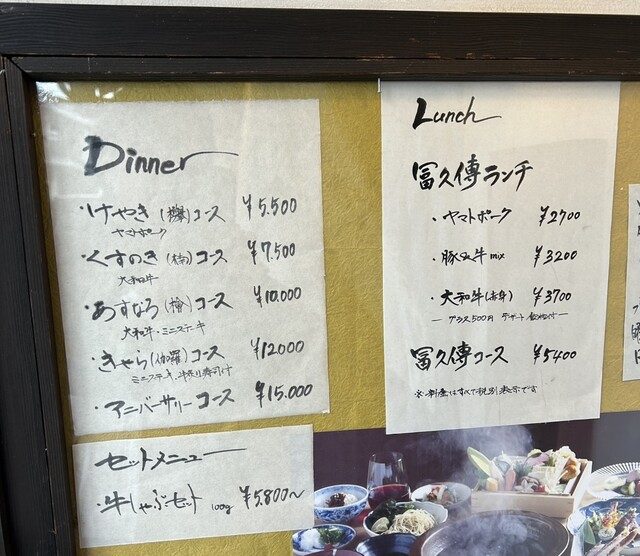 Dinner
・けやき(欅)コース ¥5.500
ヤマトポーク
・くすのき(楠)コース ¥7.500
大和牛
・あすなろ(檜)コース ¥10.000
大和牛・ミニステーキ
・きゃら(伽羅)コース ¥12000
ミニステーキ、牛炙り寿司付
・アニバーサリーコース ¥15.000
セットメニュー
・牛しゃぶセット 100g ¥5.800〜
Lunch
冨久傳ランチ
・ヤマトポーク ¥2700
・豚&牛mix ¥3200
・大和牛(赤身) ¥3700
― プラス500円 デザート 飲物付 ―
冨久傳コース ¥5400
※料金はすべて税別表示です